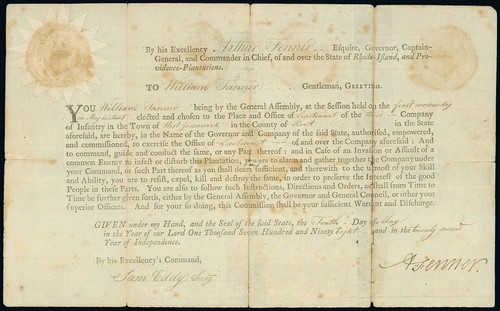 By his Excellency Arthur Fenner Esquire, Governor, Captain-
General, and Commander in Chief, of and over the State of Rhode-Island, and Pro-
vidence-Plantations.
TO William Tanner Gentleman, GREETING.
YOU William Tanner being by the General Assembly, at the Session held on the first wednesday
in May instant elected and chosen to the Place and Office of Lieutenant of the Third Company
of Infantry in the Town of West greenwich in the County of Kent in the State
aforesaid, are hereby, in the Name of the Governor and Company of the said State, authorised, empowered,
and commissioned, to exercise the Office of Lieutenant of and over the Company aforesaid: And
to command, guide and conduct the same, or any Part thereof: and in Case of an Invasion or Assault of a
common Enemy to infest or disturb this Plantation, you are to alarm and gather together the Company under
your Command, or such Part thereof as you shall deem sufficient, and therewith to the utmost of your Skill
and Ability, you are to resist, expel, kill and destroy the same, in order to preserve the Interest of the good
People in these Parts. You are also to follow such Instructions, Directions and Orders, as shall from Time to
Time be further given forth, either by the General Assembly, the Governor and General Council, or other your
superior Officers. And for your so doing, this Commission shall be your sufficient Warrant and Discharge.
GIVEN under my Hand, and the Seal of the said State, the Tenth Day of May
in the Year of our Lord One Thousand Seven Hundred and Ninety Eight and in the twenty second
Year of Independence.
By his Excellency's Command,
Sam Eddy Secry
A Fenner